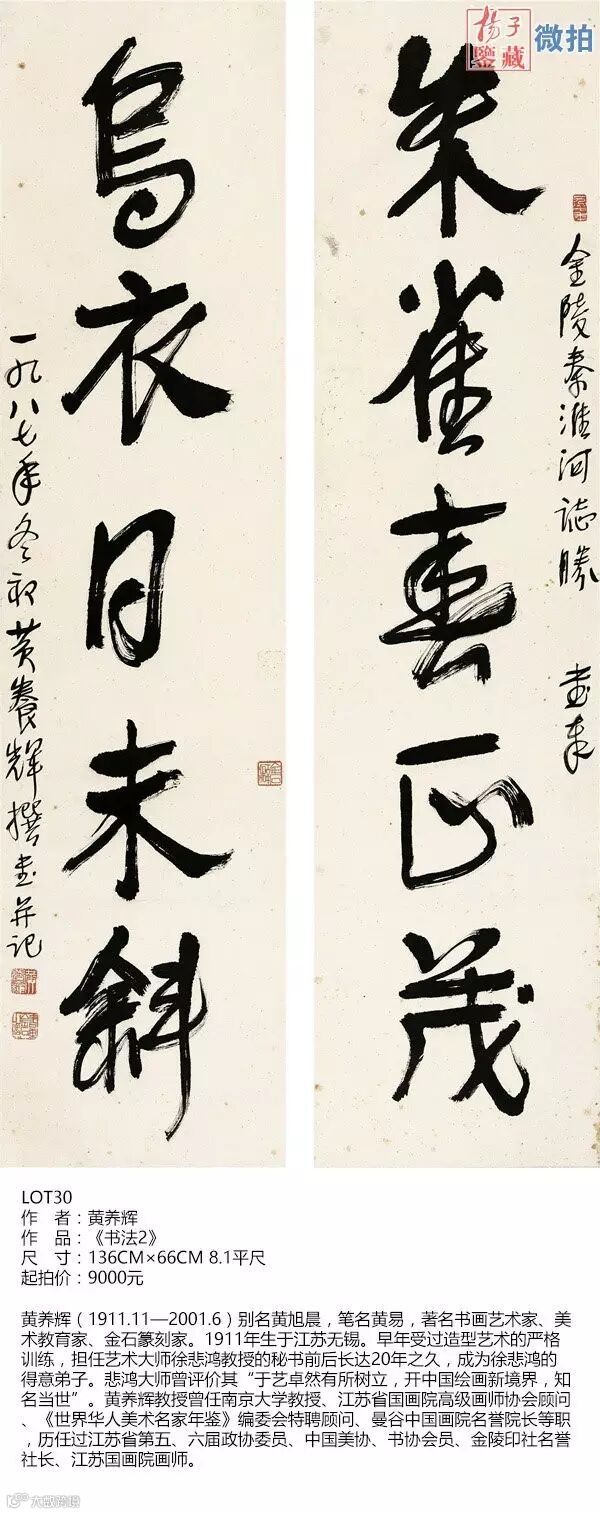 揚子
鑒藏
微拍
朱雀春正茂
金陵秦淮河誌勝
烏衣日未斜
一九八七年冬初黄養輝撰書并记
LOT30
作 者：黄养辉
作 品：《书法2》
尺 寸：136CM×66CM 8.1平尺
起拍价：9000元
黄养辉（1911.11—2001.6）别名黄旭晨，笔名黄易，著名书画艺术家、美
术教育家、金石篆刻家。1911年生于江苏无锡。早年受过造型艺术的严格
训练，担任艺术大师徐悲鸿教授的秘书前后长达20年之久，成为徐悲鸿的
得意弟子。悲鸿大师曾评价其“于艺卓然有所树立，开中国绘画新境界，知
名当世”。黄养辉教授曾任南京大学教授、江苏省国画院高级画师协会顾问
、《世界华人美术名家年鉴》编委会特聘顾问、曼谷中国画院名誉院长等职
，历任过江苏省第五、六届政协委员、中国美协、书协会员、金陵印社名誉
社长、江苏国画院画师。
大数跨境